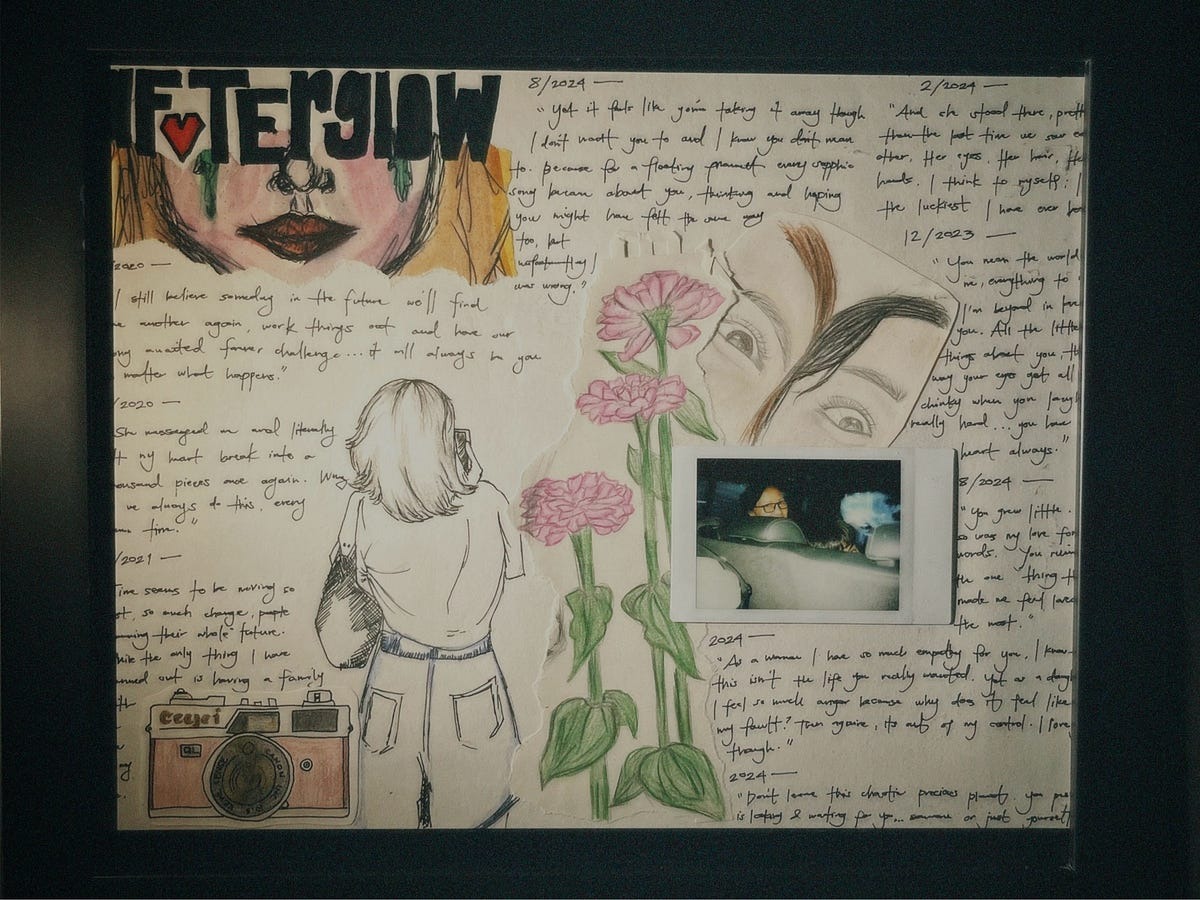 FTErglow
8/2024 —
"Yet it feels like you're taking it away though
I don't want you to and I know you don't mean
to. Because for a floating moment every sapphic
song became about you, thinking and hoping
you might have felt the same way
too, but
unfortunately I
was wrong."
2/2024 —
"And she stood there, prett
than the last time we saw ea
other. Her eyes. Her hair, He
hands. I think to myself: I
the luckiest I have ever bee
12/2023 —
"You mean the world
me, everything to
I'm beyond in love
you. All the little
things about you, th
way your eyes get all
chinky when you laugh
really hard... you have
heart always."
8/2024 —
"You grew little.
so was my love for
words. You
the one thing th
made me feel love
the most."
2020 —
I still believe someday in the future we'll find
one another again, work things out and have our
long awaited forever challenge... it will always be you
matter what happens."
/2020 —
She messaged me and literally
my heart break into a
thousand pieces once again. Why
we always do this, every
time."
/2021 —
Time seems to be moving so
st, so much change, people
their whole future.
While the only thing I have
out is having a family
Ceejei
QL
CANON
2024 —
"As a woman I have so much empathy for you, I know
this isn't the life you really wanted. Yet as a daugh
I feel so much anger because why does it feel like
my fault? Then again, its out of my control. I love
though."
2024 —
"Don't leave this chaotic precious planet you
is looking & waiting for you... someone or just yourself